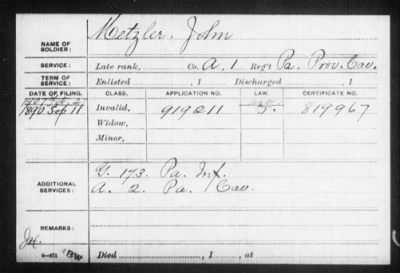 Metzler, John
NAME OF
SOLDIER:
SERVICE: Late rank, Co. A. 1 Reg't Pa. Prov. Cav.
TERM OF
SERVICE: Enlisted , 1 Discharged , 1
DATE OF FILING. CLASS. APPLICATION NO. LAW. CERTIFICATE NO.
1890 Sep 11 Invalid, 919211 817967
Widow,
Minor,
ADDITIONAL
SERVICES:
G. 173. Pa. Inf.
A. 2. Pa. Cav.
REMARKS:
Died , 1 , at